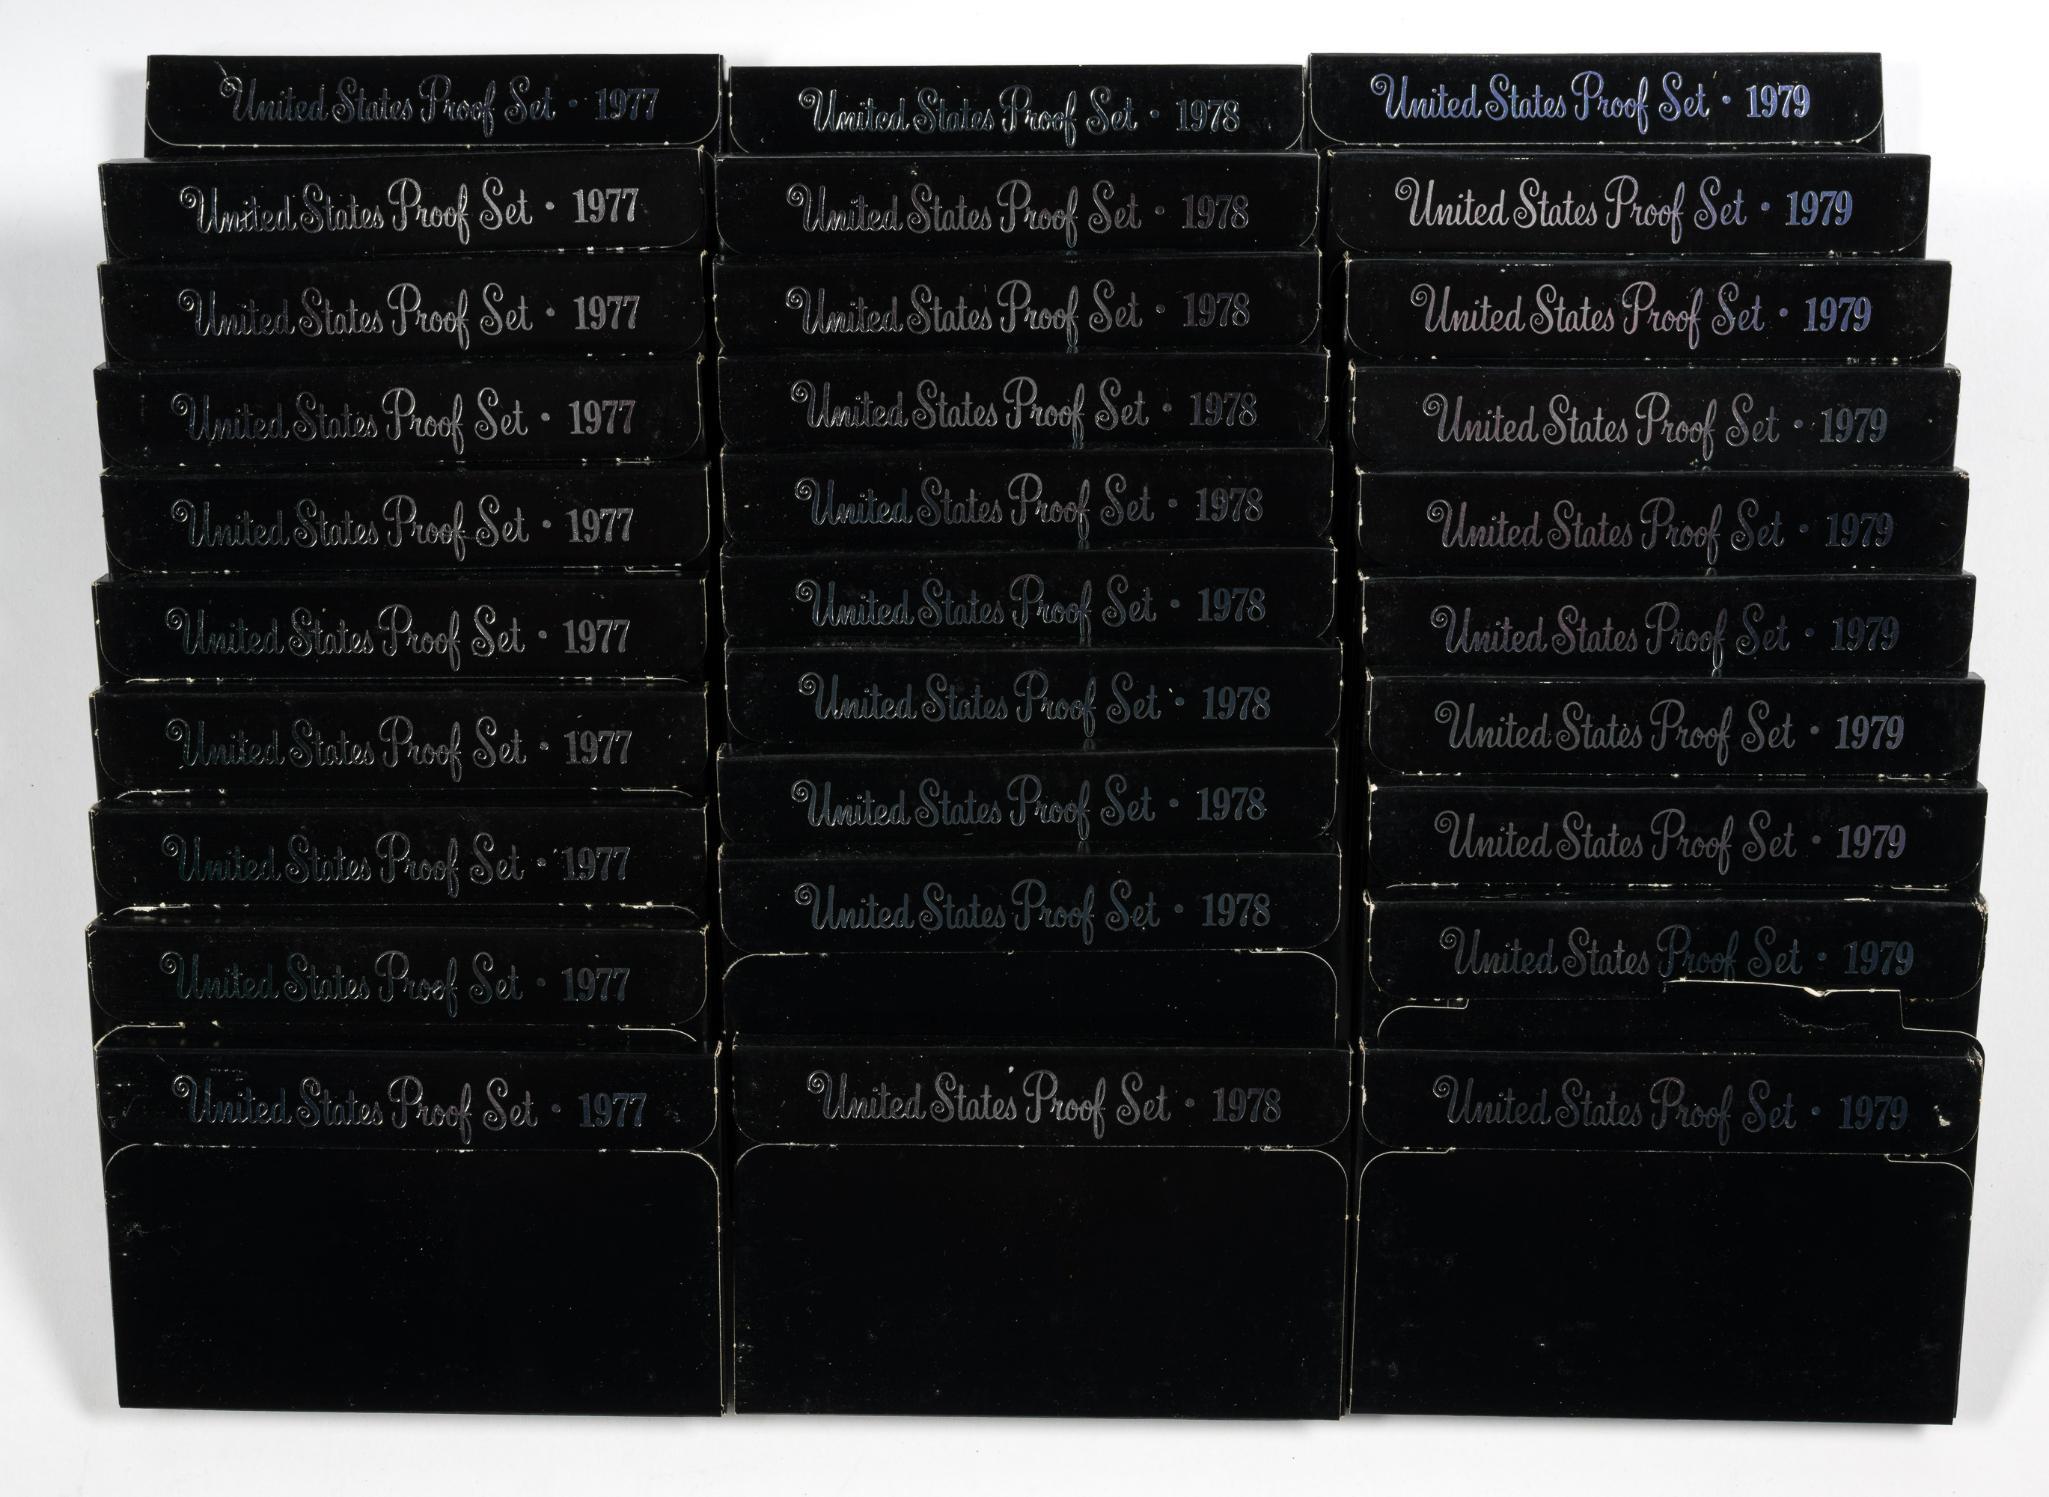 United States Proof Set • 1977
United States Proof Set • 1977
United States Proof Set • 1977
United States Proof Set • 1977
United States Proof Set • 1977
United States Proof Set • 1977
United States Proof Set • 1977
United States Proof Set • 1977
United States Proof Set • 1977
United States Proof Set • 1977
United States Proof Set • 1978
United States Proof Set • 1978
United States Proof Set • 1978
United States Proof Set • 1978
United States Proof Set • 1978
United States Proof Set • 1978
United States Proof Set • 1978
United States Proof Set • 1978
United States Proof Set • 1978
United States Proof Set • 1978
United States Proof Set • 1979
United States Proof Set • 1979
United States Proof Set • 1979
United States Proof Set • 1979
United States Proof Set • 1979
United States Proof Set • 1979
United States Proof Set • 1979
United States Proof Set • 1979
United States Proof Set • 1979
United States Proof Set • 1979